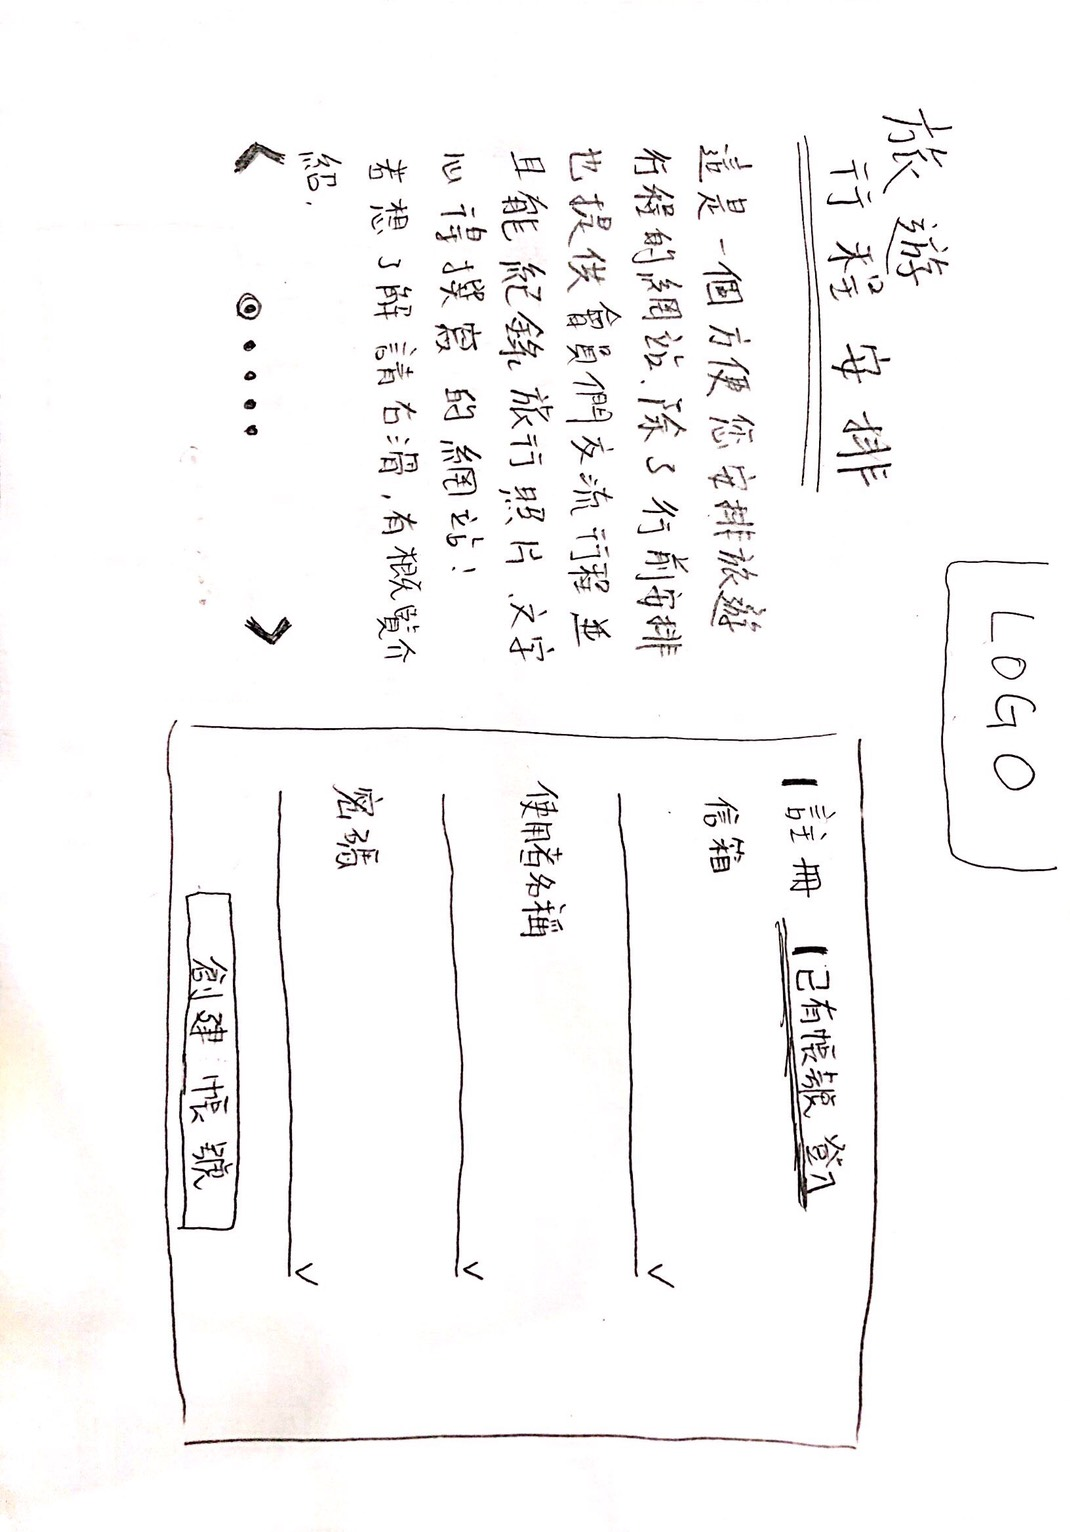 LOGO
旅遊
行程安排
這是一個方便您安排旅遊
行程的網站、除了行前安排
也提供會員們交流行程並
且能紀錄旅行照片、文字
心得撰寫的網站！
若想了解請右滑，有概覽介
紹.
註冊 已有帳號 登入
信箱
使用者名稱
密碼
創建帳號